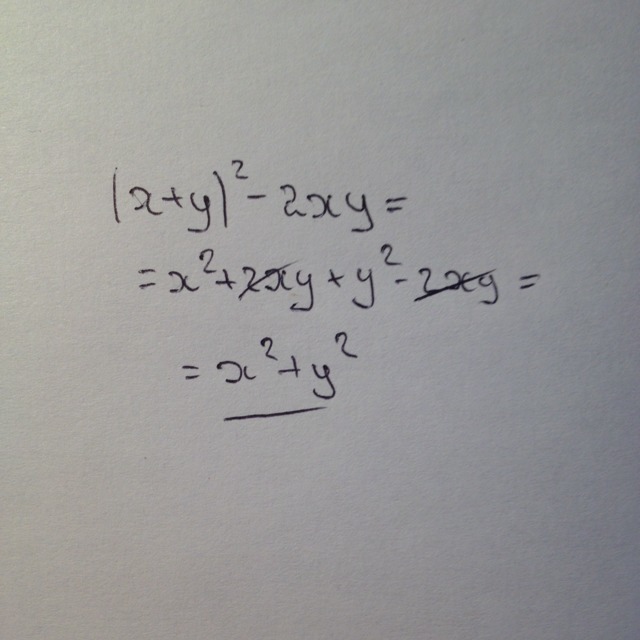 (x+y)² - 2xy =
= x² + 2xy + y² - 2xy =
= x² + y²